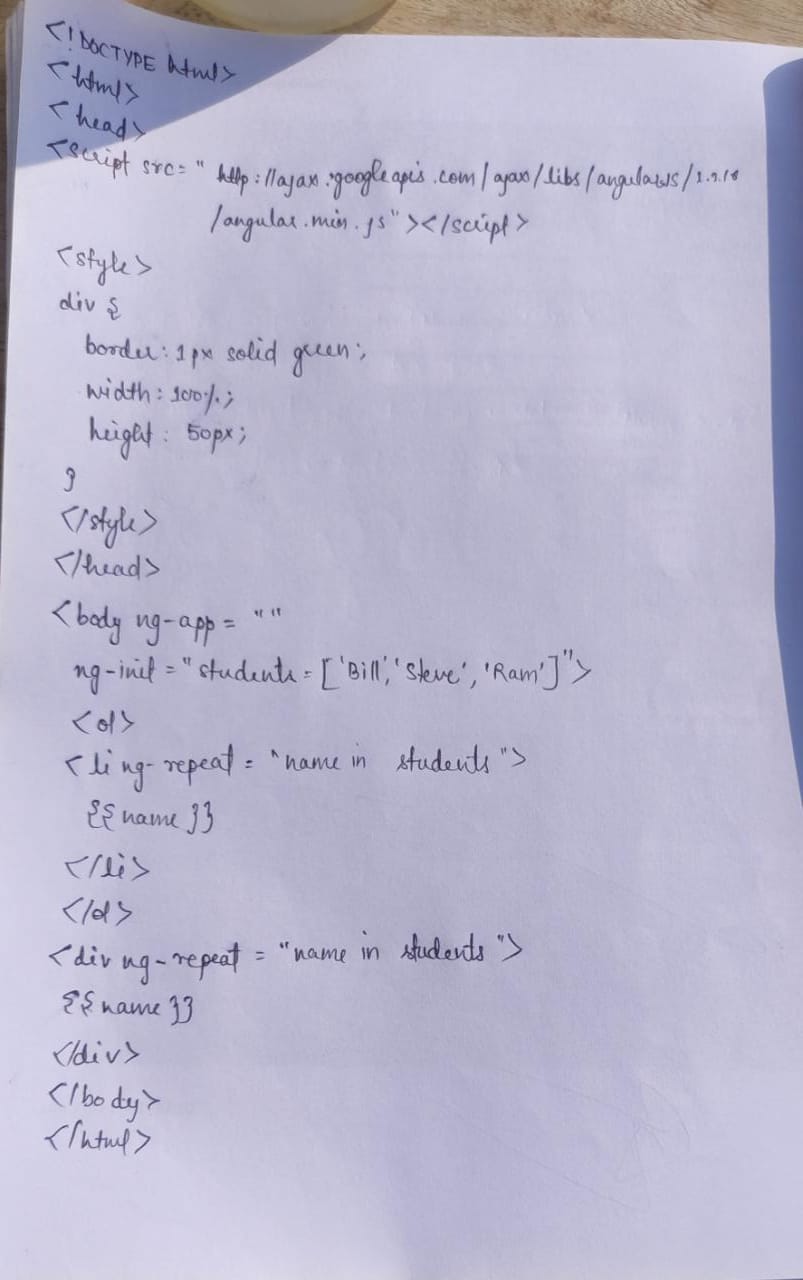 <!DOCTYPE html>
<html>
<head>
<script src="http://ajax.googleapis.com/ajax/libs/angularJS/
/angular.min.js"></script>
<style>
div {
border: 1px solid green;
width: 100%;
height: 50px;
}
</style>
</head>
<body ng-app = ""
ng-init = "students = ['Bill','Steve','Ram']">
<ol>
<li ng-repeat = "name in students">
{{name}}
</li>
</ol>
<div ng-repeat = "name in students">
{{name}}
</div>
</body>
</html>